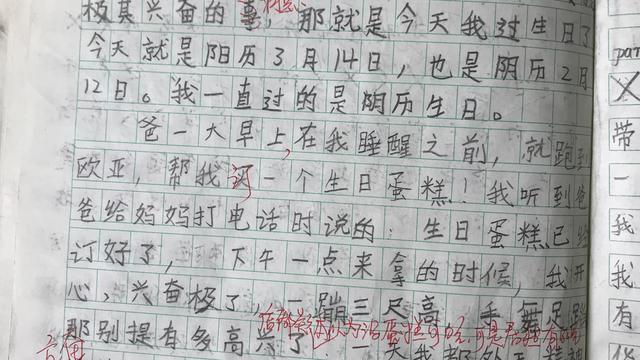 极其兴奋的事，那就是今天我过生日了
今天就是阳历3月14日，也是阴历2月
12日。我一直过的是阴历生日。
爸一大早上，在我睡醒之前，就跑到
欧亚，帮我订一个生日蛋糕！我听到爸
爸给妈妈打电话时说的：生日蛋糕已经
订好了，下午一点来拿的时候，我开
心，兴奋极了，一蹦三尺高，手舞足蹈
那别提有多高兴了
par
带
一
我
我
有